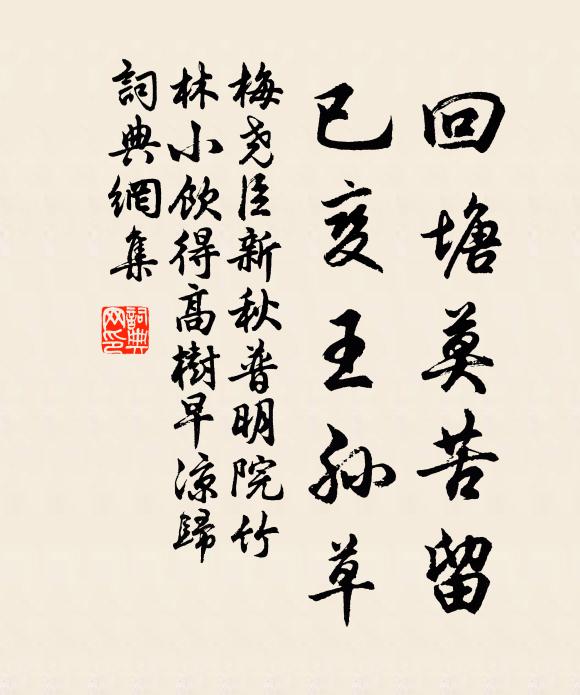 回塘莫苦留
已变王孙草
梅尧臣新秋普明院竹
林小饮得高樹早凉歸
詞典網集
詞典
网印